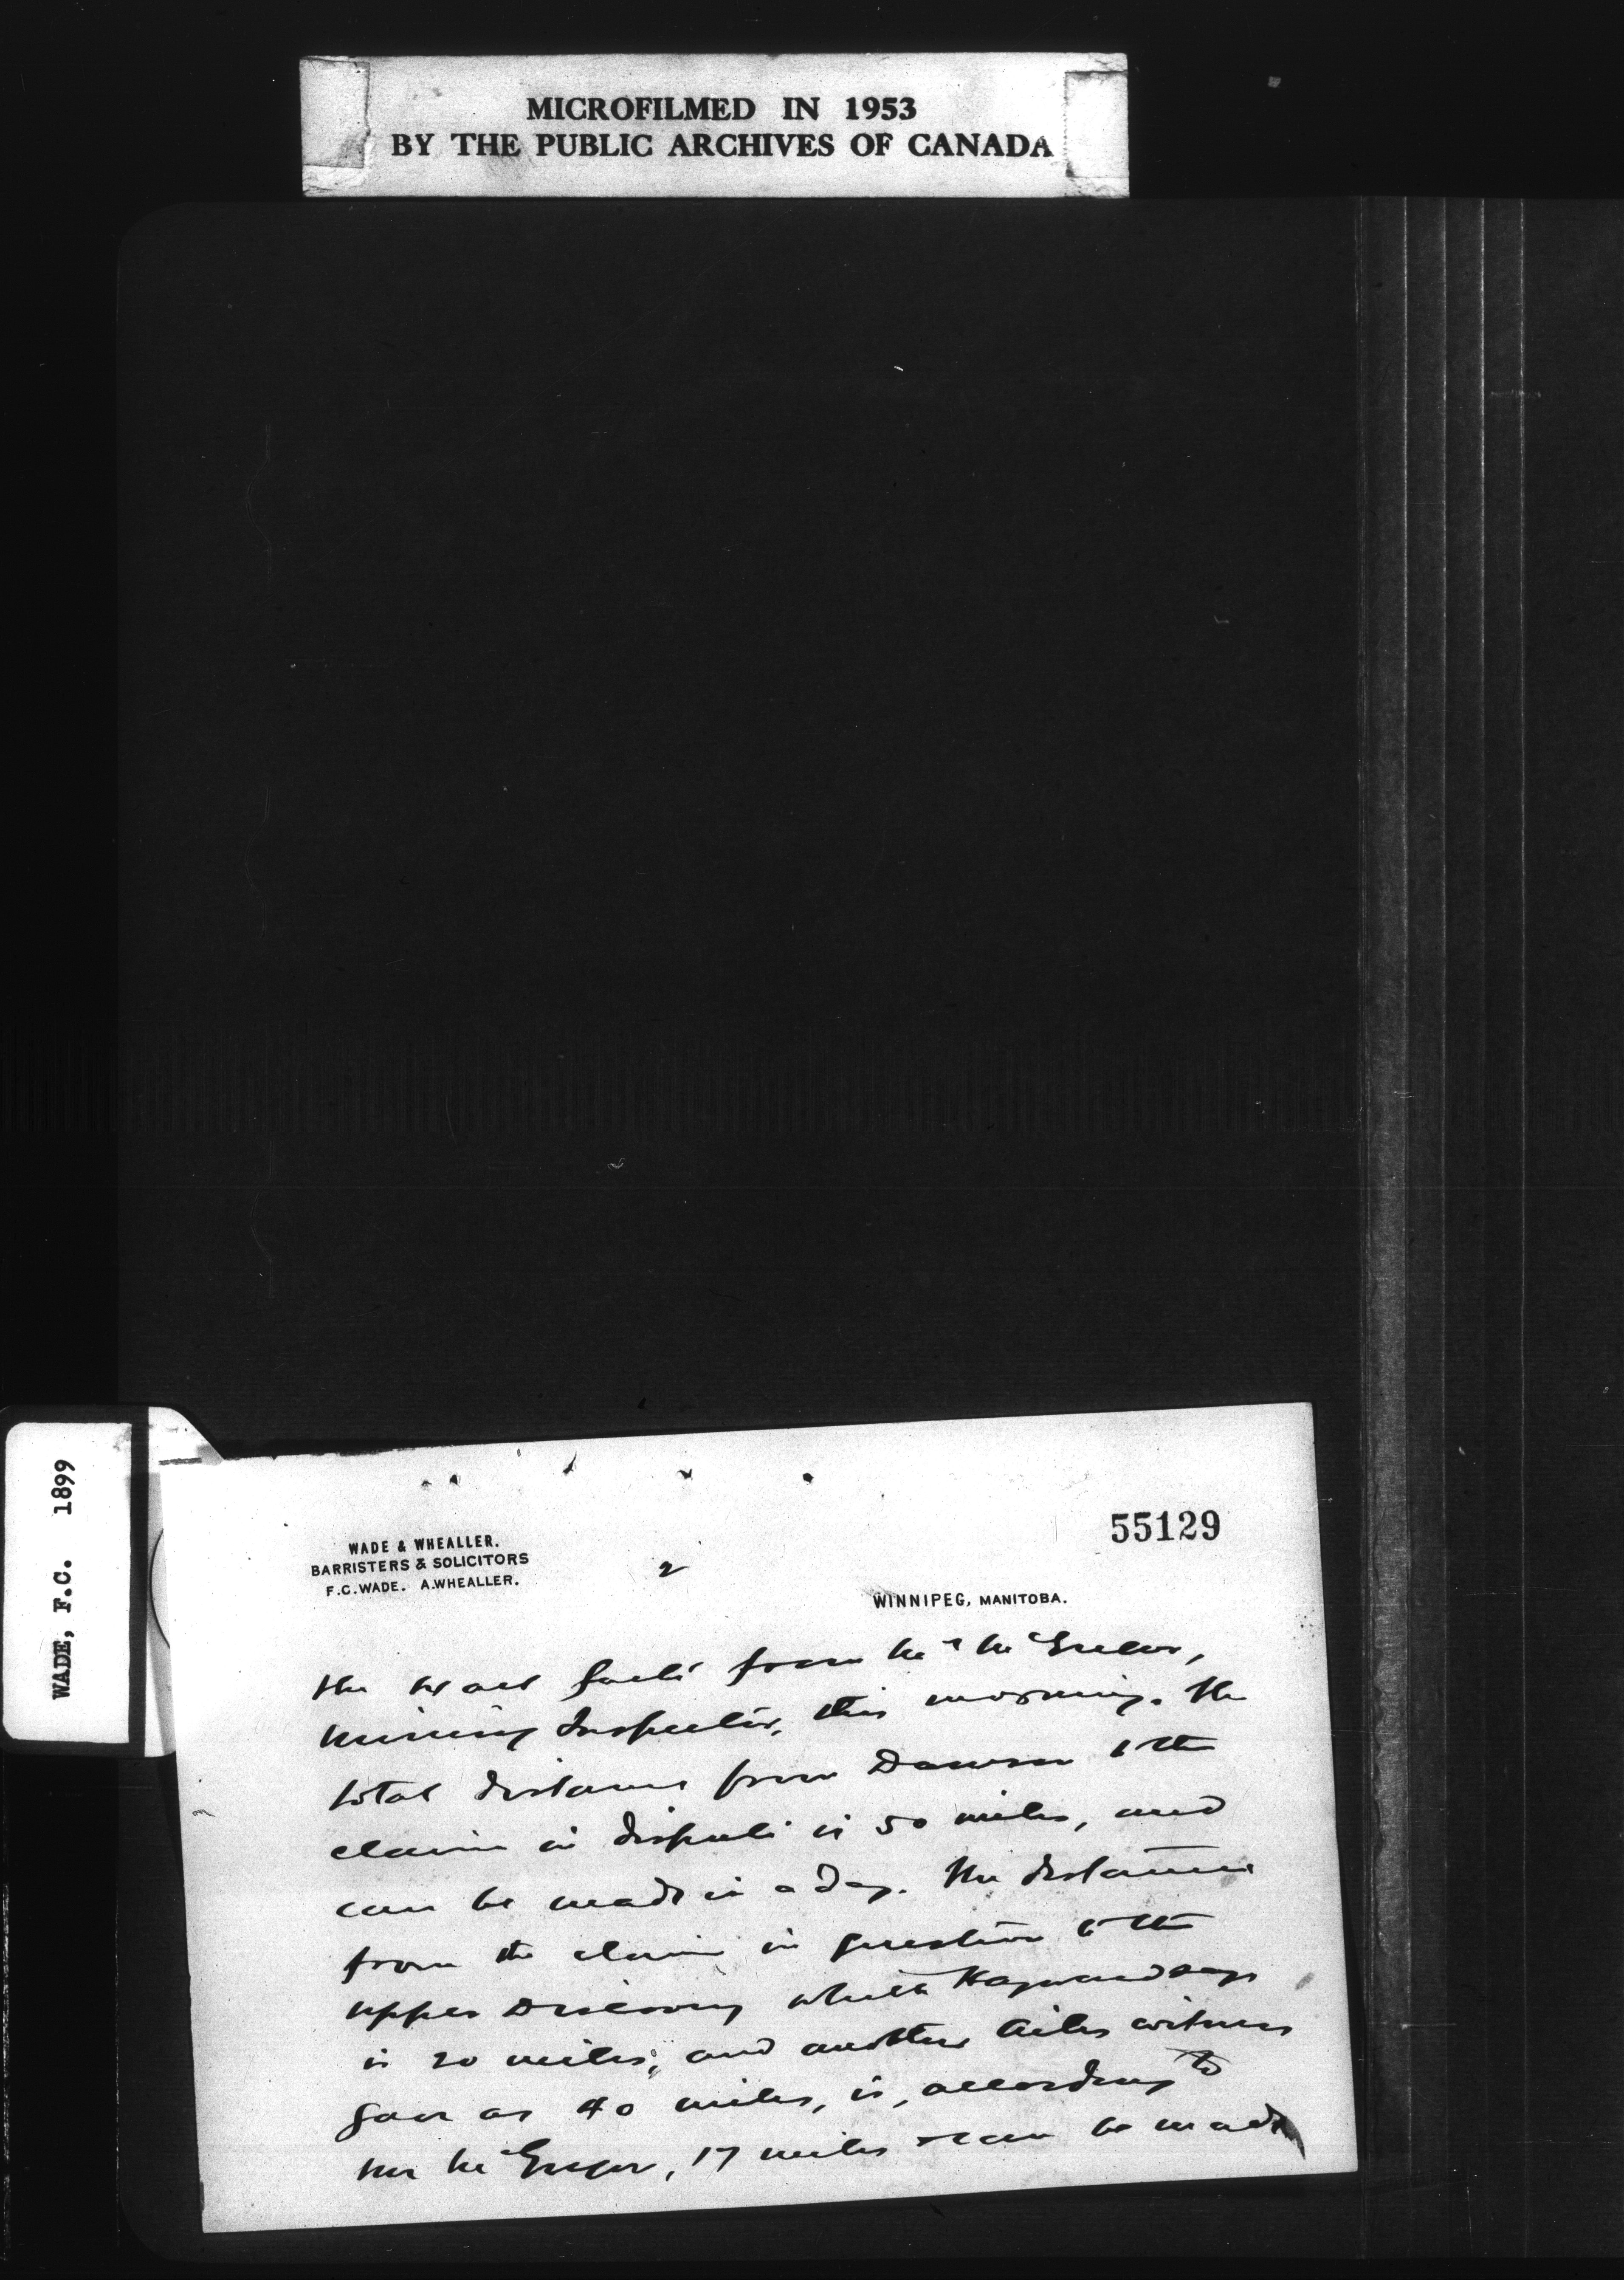 MICROFILMED IN 1953
BY THE PUBLIC ARCHIVES OF CANADA
WADE, F.C. 1899
55129
WADE & WHEALLER.
BARRISTERS & SOLICITORS
F.C.WADE. A.WHEALLER.
2
WINNIPEG, MANITOBA.
the exact facts from Mr McGregor,
Mining Inspector, this morning. The
total distance from Dawson to the
claim in dispute is 50 miles, and
can be made in a day. The distance
from the claim in question to the
upper Discovery which Hayward says
is 20 miles, and another witness
gave as 40 miles, is, according to
Mr McGregor, 17 miles & can be made